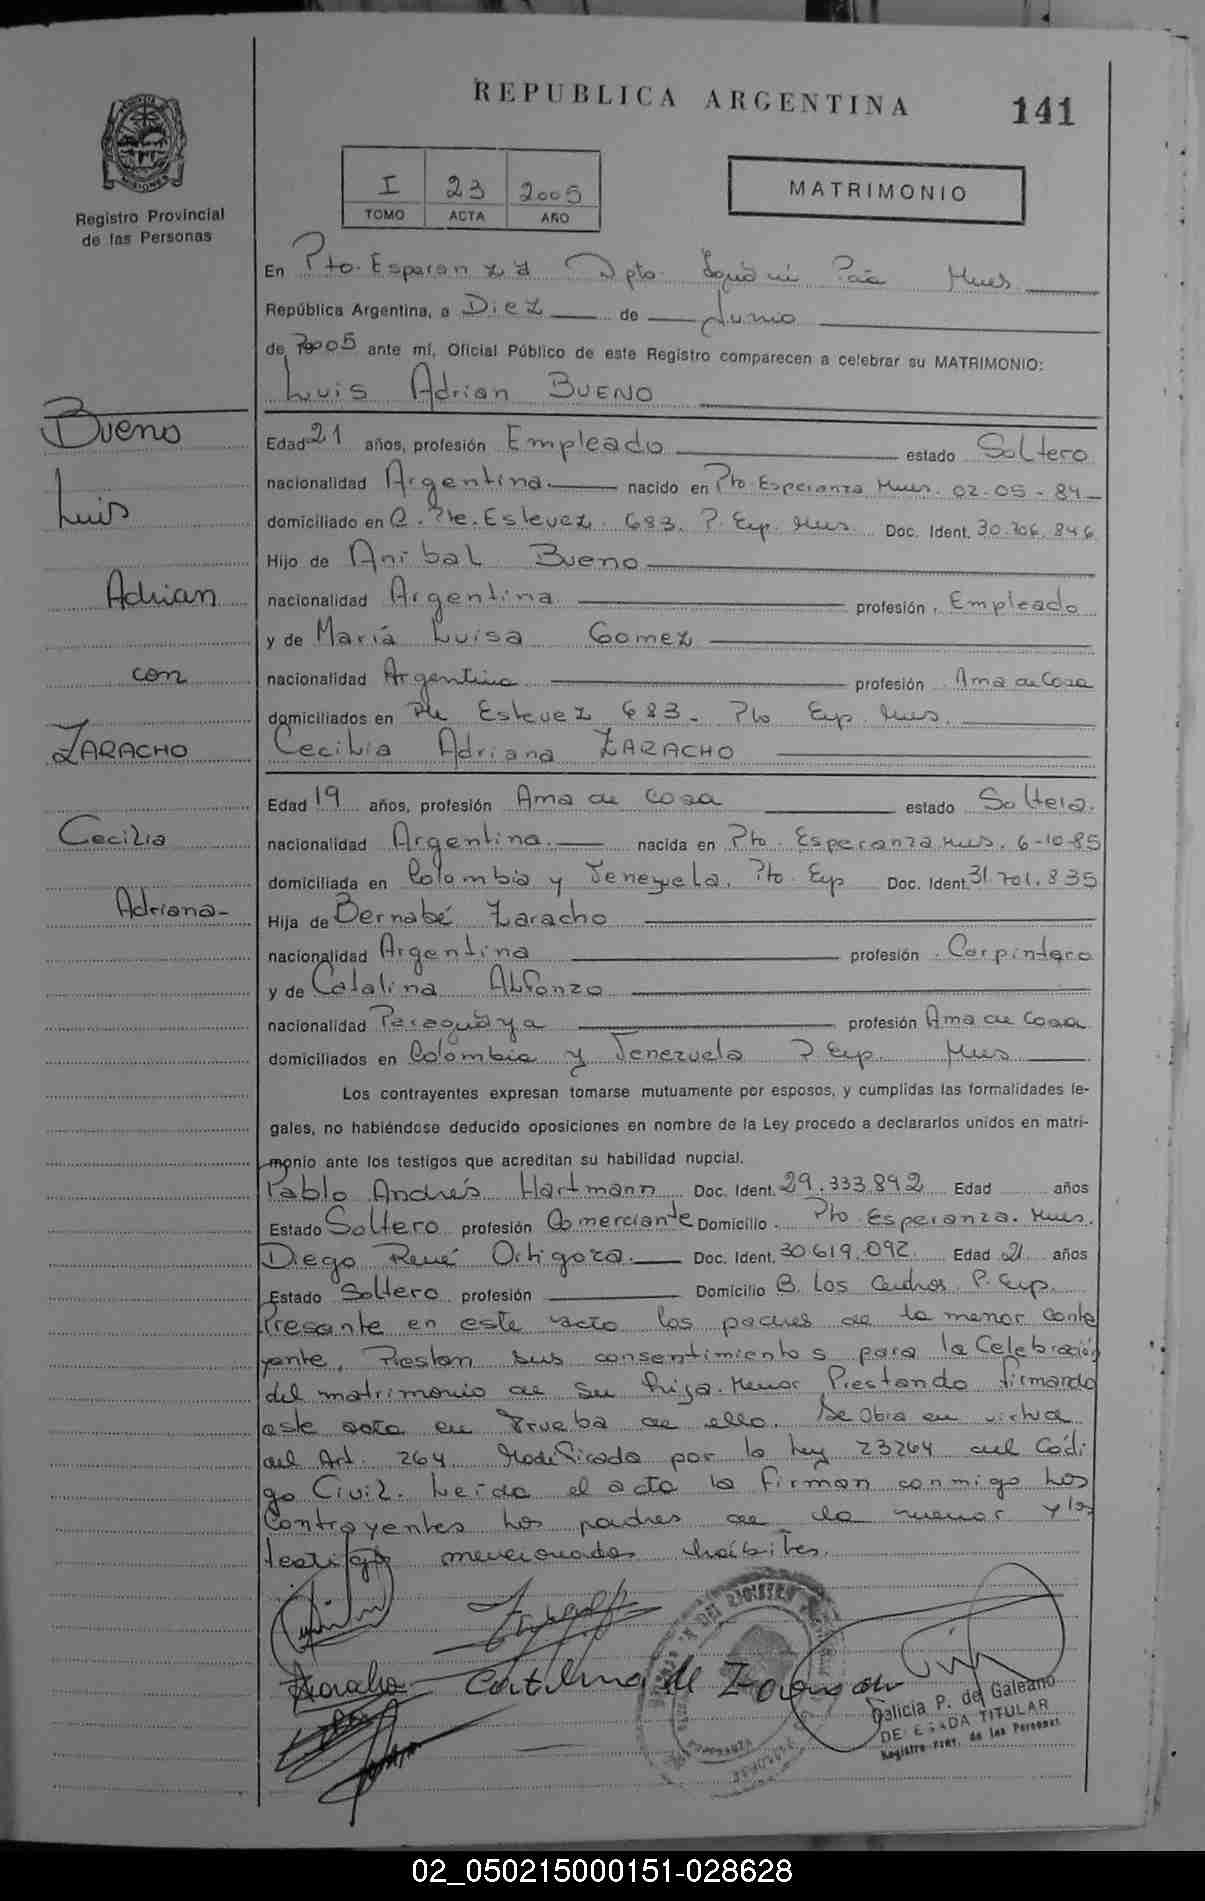 REPUBLICA ARGENTINA
141
MISIONES
Registro Provincial
de las Personas
I 23 2005
TOMO ACTA AÑO
MATRIMONIO
En Pto. Esperanza Dpto. Mnes
República Argentina, a Diez de Junio
de 2005 ante mí, Oficial Público de este Registro comparecen a celebrar su MATRIMONIO:
Luis Adrian BUENO
Bueno
Luis
Adrian
con
ZARACHO
Cecilia
Adriana-
Edad 21 años, profesión Empleado estado Soltero
nacionalidad Argentina. nacido en Pto. Esperanza Mnes. 02-05-84-
domiciliado en C. Pte. Estevez. 683. P. Esp. Mnes. Doc. Ident. 30.706.846
Hijo de Anibal Bueno
nacionalidad Argentina profesión Empleado
y de Maria Luisa Gomez
nacionalidad Argentina profesión Ama de Casa
domiciliados en Pte Estevez 683. Pto Esp. Mnes.
Cecilia Adriana ZARACHO
Edad 19 años, profesión Ama de Casa estado Soltera.
nacionalidad Argentina. nacida en Pto. Esperanza Mnes. 6-10-85
domiciliada en Colombia y Venezuela. Pto. Esp Doc. Ident. 31.701.835
Hija de Bernabé Zaracho
nacionalidad Argentina profesión Carpintero
y de Catalina Alfonzo
nacionalidad Paraguaya profesión Ama de Casa
domiciliados en Colombia y Venezuela P. Esp. Mnes
Los contrayentes expresan tomarse mutuamente por esposos, y cumplidas las formalidades le-
gales, no habiéndose deducido oposiciones en nombre de la Ley procedo a declararlos unidos en matri-
monio ante los testigos que acreditan su habilidad nupcial.
Pablo Andrés Hartmann Doc. Ident. 29.333.892 Edad años
Estado Soltero profesión Comerciante Domicilio Pto Esperanza. Mnes.
Diego René Ortigoza. Doc. Ident. 30.619.092 Edad 21 años
Estado Soltero profesión Domicilio B. Los Cedros P. Esp.
Presente en este acto los padres de la menor contra
yente, Prestan sus consentimientos para la Celebración
del matrimonio de su hija Menor Prestando firmando
este acta en Prueba de ello. Se obra en virtud
del Art. 264 Modificado por la Ley 23264 del Códi
go Civil. Leida el acta la firman conmigo Los
Contrayentes Los padres de la menor y los
testigos mencionados hábiles.
Zaracho
Catalina de
Galicia P. de Galeano
DELEGADA TITULAR
Registro Prov. de las Personas
02_050215000151-028628